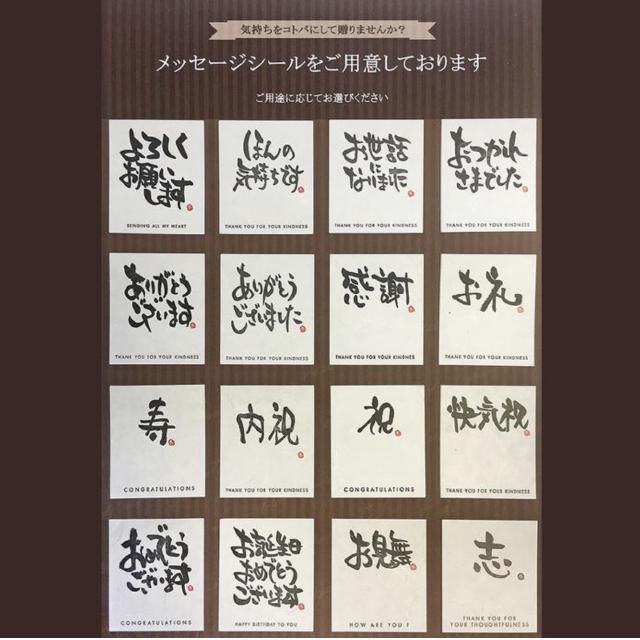 気持ちをコトバにして贈りませんか？
メッセージシールをご用意しております
ご用途に応じてお選びください
よろしく
お願い
します
SENDING ALL MY HEART
ほんの
気持ちです
THANK YOU FOR YOUR KINDNESS
お世話
に
なりました
THANK YOU FOR YOUR KINDNESS
おつかれ
さまでした
THANK YOU FOR YOUR KINDNESS
ありがとう
ございます
THANK YOU FOR YOUR KINDNESS
ありがとう
ございました
THANK YOU FOR YOUR KINDNESS
感謝
THANK YOU FOR YOUR KINDNES
お礼
THANK YOU FOR YOUR KINDNESS
寿
CONGRATULATIONS
内祝
THANK YOU FOR YOUR KINDNESS
祝
CONGRATULATIONS
快気祝
THANK YOU FOR YOUR KINDNESS
おめでとう
ございます
CONGRATULATIONS
お誕生日
おめでとう
ございます
HAPPY BIRTHDAY TO YOU
お見舞
HOW ARE YOU ?
志
THANK YOU FOR
YOUR THOUGHTFULNESS